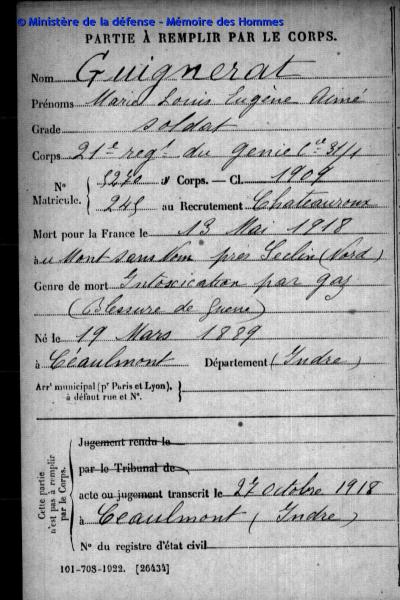 © Ministère de la défense - Mémoire des Hommes
PARTIE À REMPLIR PAR LE CORPS.
Nom Guignerat
Prénoms Marie Louis Eugène Aimé
Grade soldat
Corps 21e regt du genie Cie 31/1
No 5270 au Corps. — Cl. 1909
Matricule. 245 au Recrutement Chateauroux
Mort pour la France le 13 Mai 1918
à au Mont sans Nom près Seclin (Nord)
Genre de mort Intoxication par gaz
(Blessure de Guerre)
Né le 19 Mars 1889
à Céaulmont Département (Indre)
Arrt municipal (pr Paris et Lyon),
à défaut rue et No.
Cette partie n'est pas à remplir par le Corps.
Jugement rendu le
par le Tribunal de
acte ou jugement transcrit le 27 Octobre 1918
à Ceaulmont (Indre)
No du registre d'état civil
101-708-1922. [26434]